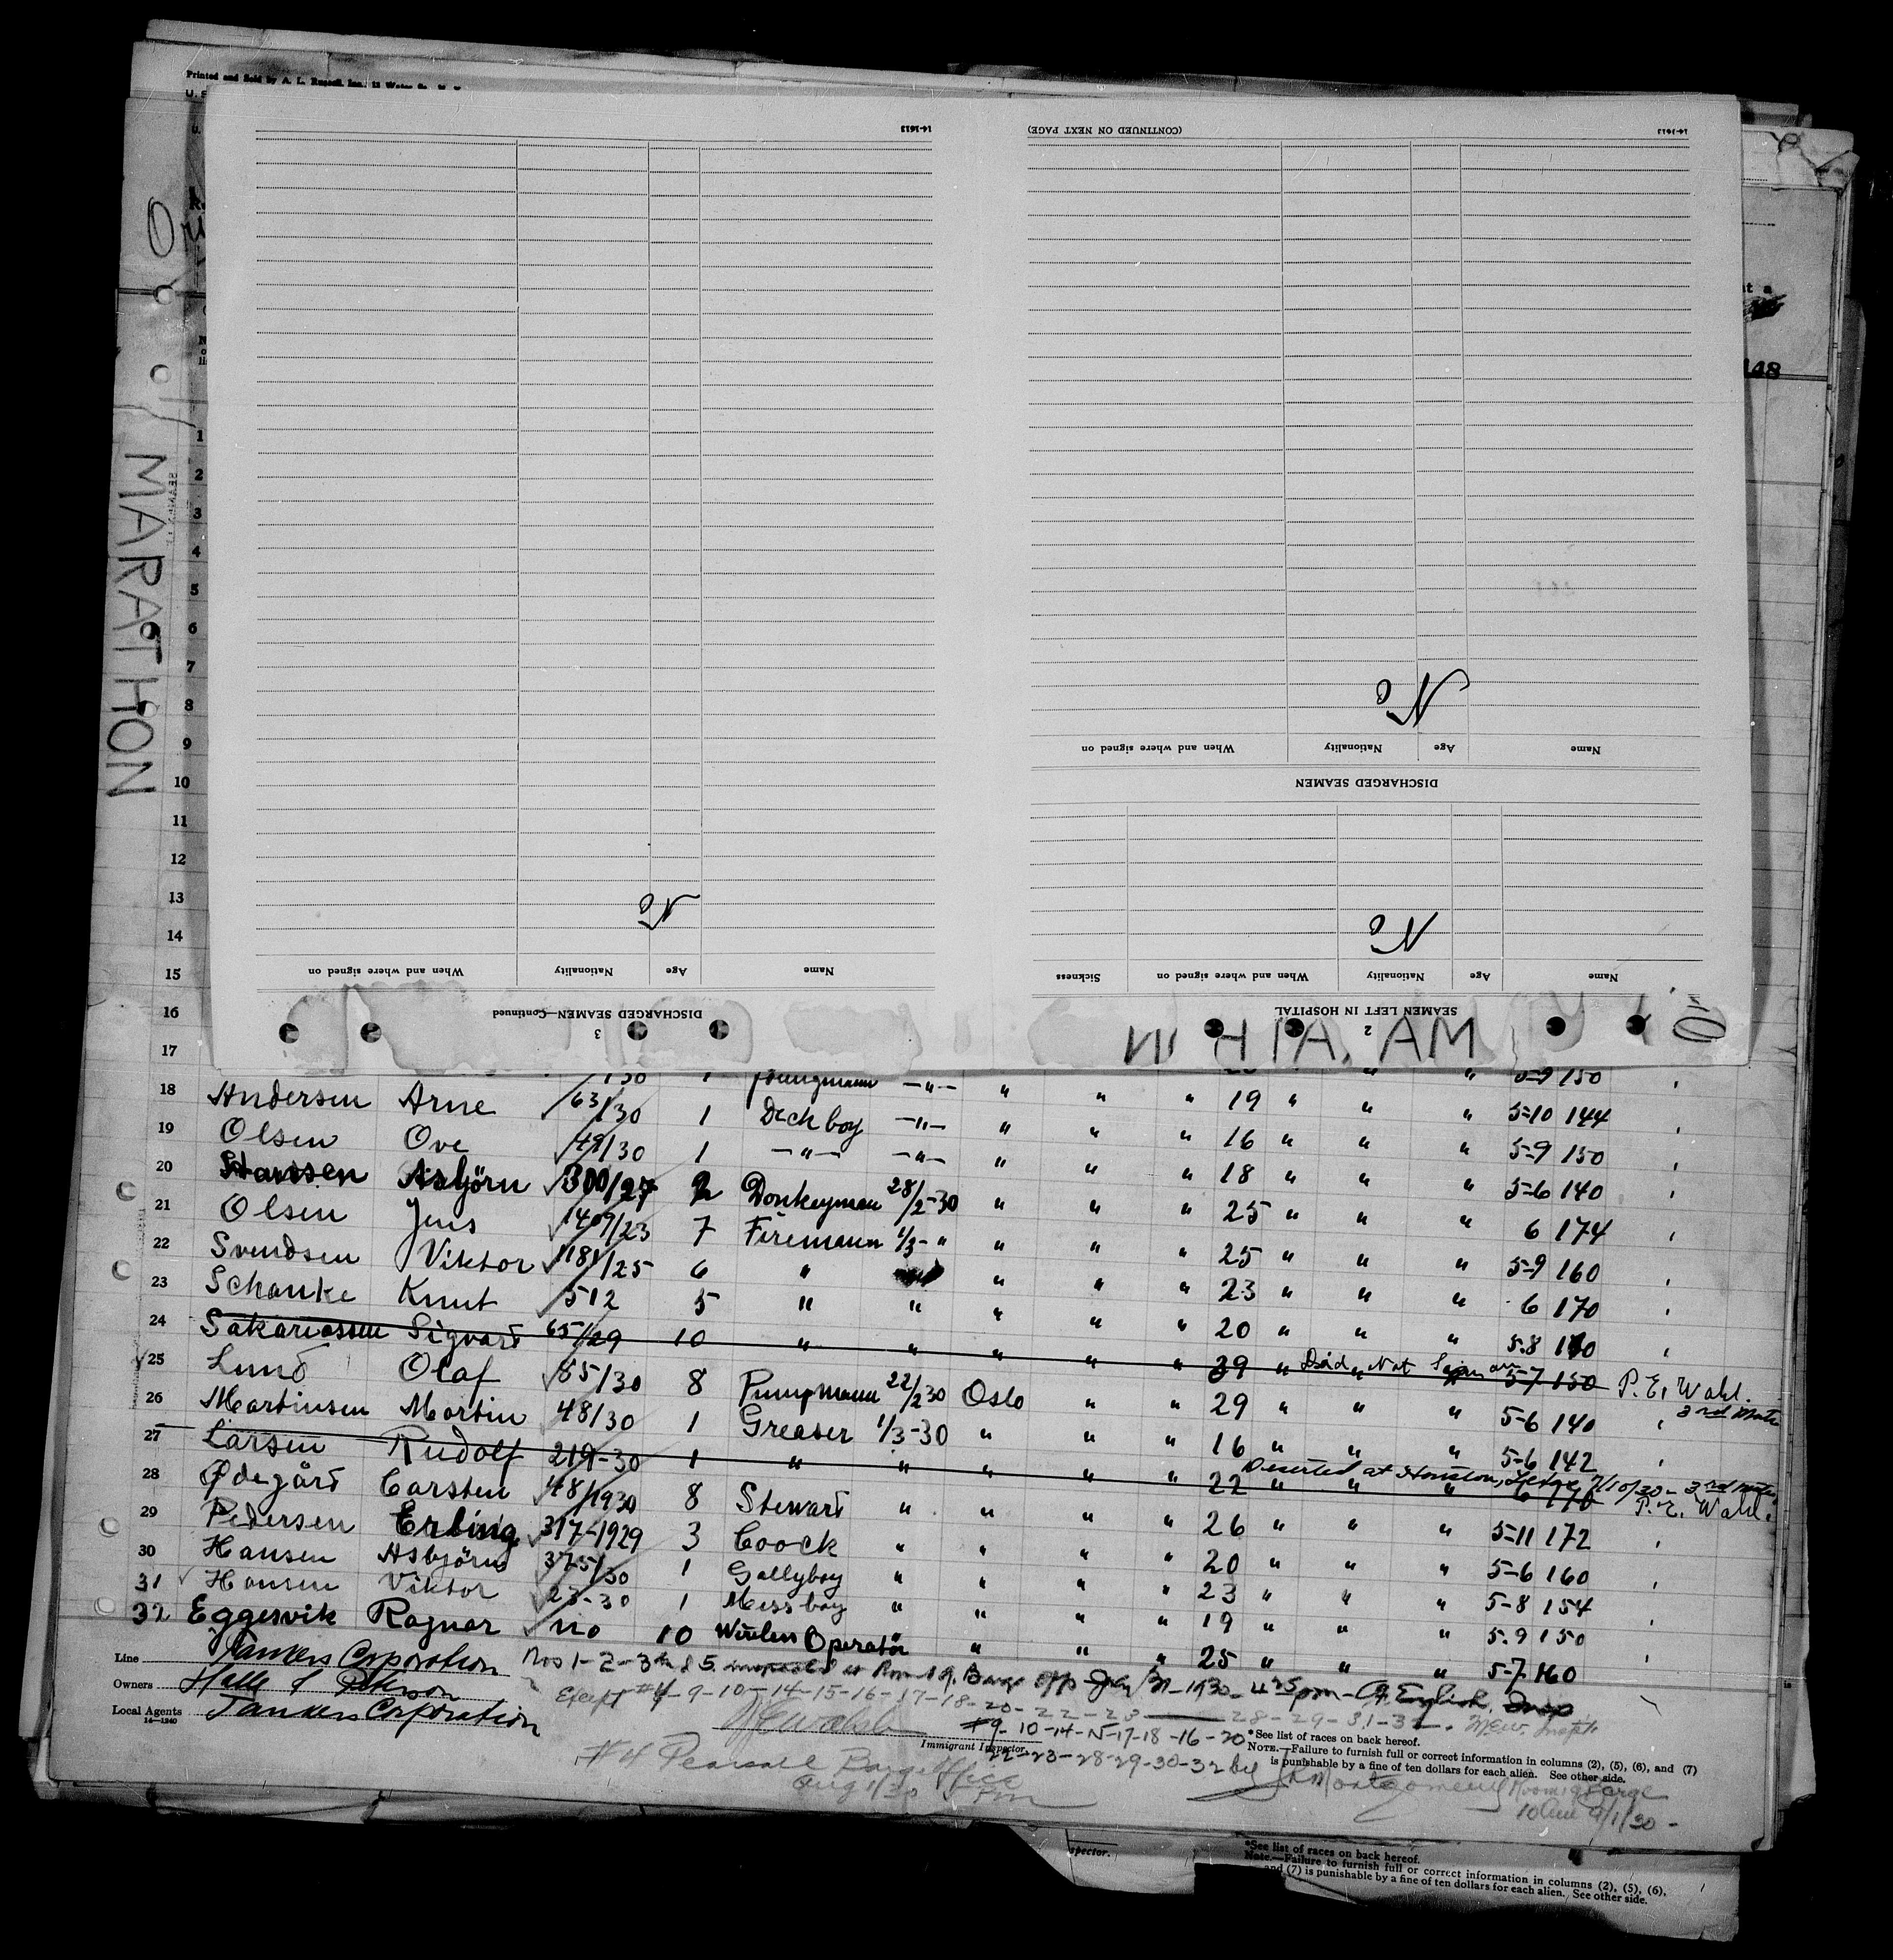 Printed and Sold by A. L. Russell, Inc., 13 Water St.
148
MARATHON
14-1613
(CONTINUED ON NEXT PAGE)
14-1613
No
Name Age Nationality When and where signed on
DISCHARGED SEAMEN
No
No
Name Age Nationality When and where signed on
Name Age Nationality When and where signed on Sickness
DISCHARGED SEAMEN—Continued
SEAMEN LEFT IN HOSPITAL
3
2
1
2
3
4
5
6
7
8
9
10
11
12
13
14
15
16
17
/30 1 Jungmann —"— " " " " 5-9 150
18 Andersen Arne 63/30 1 Deck boy —"— " " " 19 " " " 5-10 144
19 Olsen Ove 49/30 1 —"— —"— " " " 16 " " " 5-9 150
20 Hansen Asbjörn 300/27 2 Donkeyman 28/2-30 " " " 18 " " " 5-6 140
21 Olsen Jens 1409/23 7 Firemann 1/3- " " " " 25 " " " 6 174
22 Svendsen Viktor 1181/25 6 " " " " 25 " " " 5-9 160
23 Schanke Knut 512 5 " " " " " 23 " " " 6 170
24 Sakariassen Sigvart 65/29 10 " " " " " 20 " " " 5-8
25 Lund Olaf 55/30 8 Pumpmann 22/2 30 Oslo " " 39 " Did Not Sign on 5-7 150 P. E. Wahl.
3rd Mate
26 Martinsen Martin 48/30 1 Greaser 1/3-30 " " " 29 " " " 5-6 140
27 Larsen Rudolf 219-30 1 " " " " " 16 " " " 5-6 142
Deserted at Houston, 7/10/30 - 3rd Mate
28 Ødegård Carsten 48/1930 8 Stewart " " " " 22 " " " 6 170 P. E. Wahl.
29 Pedersen Erling 317-1929 3 Coock " " " " 26 " " " 5-11 172
30 Hansen Asbjörn 375/30 1 Gallyboy " " " " 20 " " " 5-6 160
31 Hansen Viktor 23-30 1 Messboy " " " " 23 " " " 5-8 154
32 Eggesvik Ragnar no 10 Wireless Operatör " " " 19 " " " 5-9 150
25 " " " 5-7 160
Line Tankers Corporation
Nos 1-2-3 5
Owners Halle & Peterson
Except #4-9-10-14-15-16-17-18-20-22-23 28-29-31-32.
Local Agents Tankers Corporation
14—1240
#9-10-14-15-17-18-16-20
Immigrant Inspector
22-23-28-29-30-32 by Montgomery Room 19 Barge
10 AM 9/1/30 -
#4 Pearsall Barge Office
Aug 1/30 PM
*See list of races on back hereof.
NOTE.—Failure to furnish full or correct information in columns (2), (5), (6), and (7)
is punishable by a fine of ten dollars for each alien. See other side.
spector.
*See list of races on back hereof.
NOTE.—Failure to furnish full or correct information in columns (2), (5), (6),
and (7) is punishable by a fine of ten dollars for each alien. See other side.